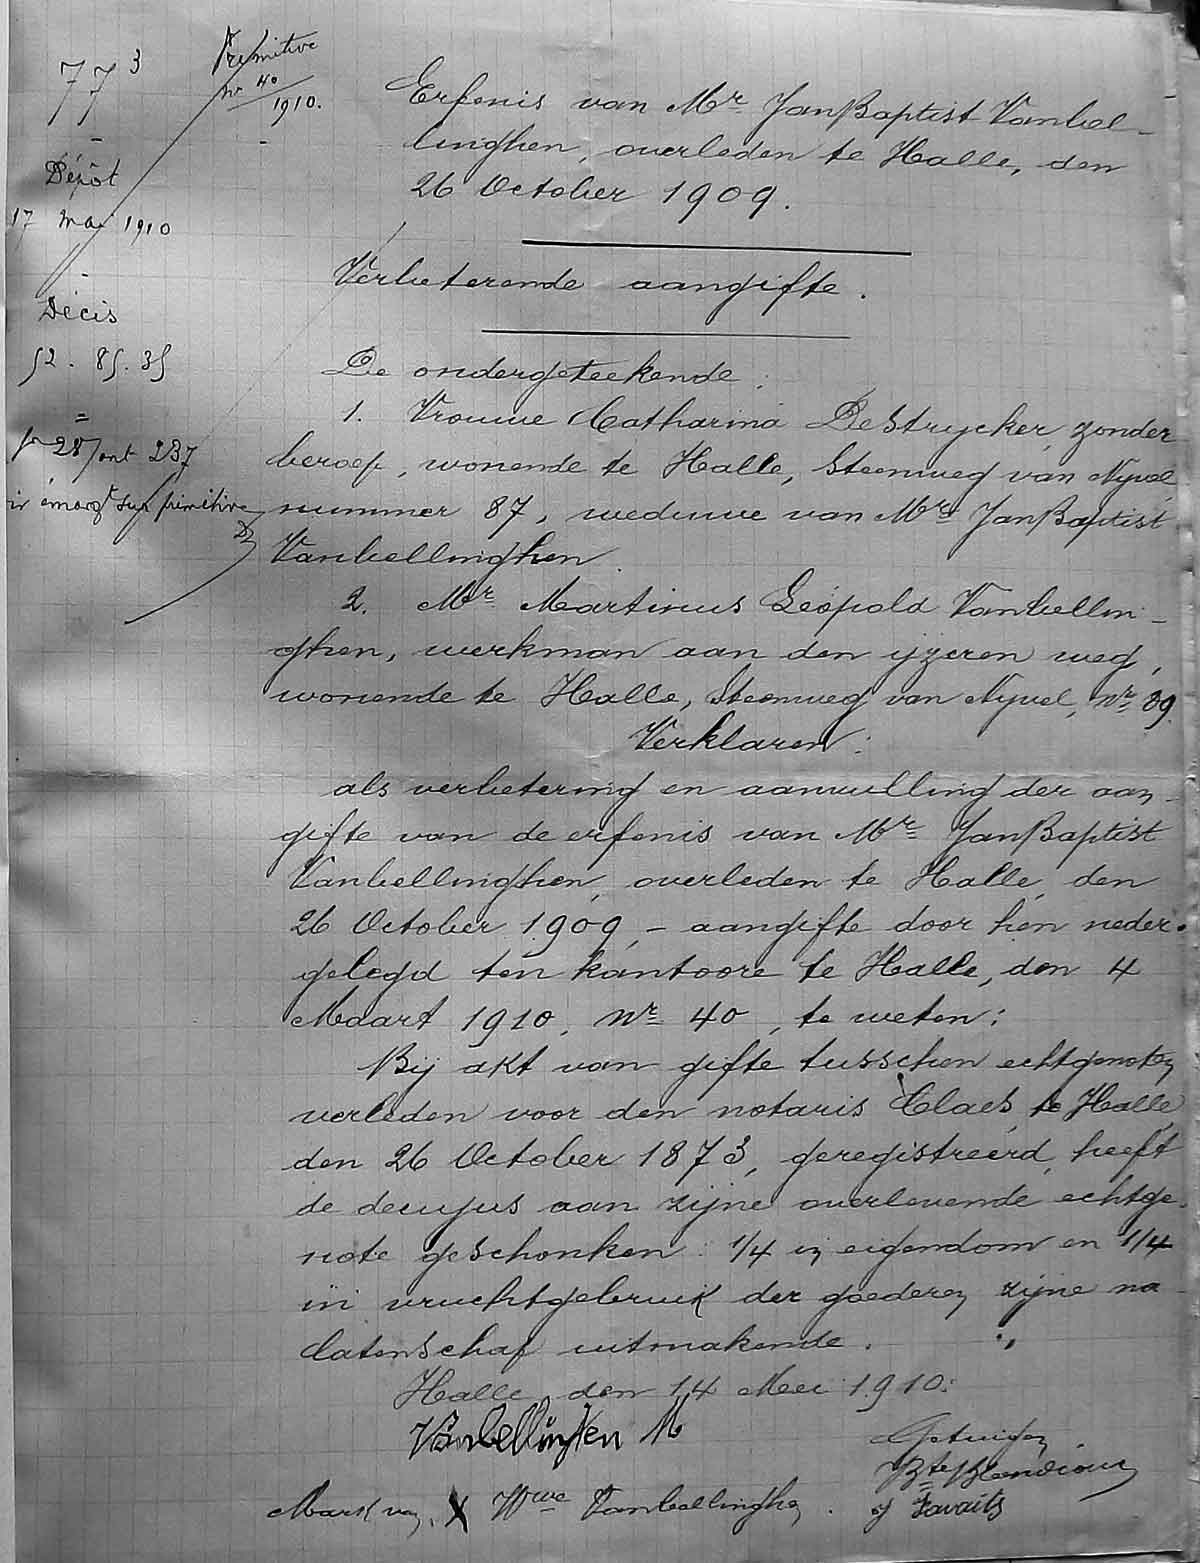 77 3
Primitive
nr 40
1910.
Dépôt
17 mai 1910
Décis
52. 85. 35
28 / art 237
émarg.t sur primitive
Erfenis van Mr JanBaptist Vanbel-
linghen, overleden te Halle, den
26 October 1909.
Verbeterende aangifte.
De ondergeteekende:
1. Vrouwe Catharina DeStrycker, zonder
beroep, wonende te Halle, Steenweg van Nyvel,
nummer 87, weduwe van Mr JanBaptist
Vanbellinghen.
2. Mr Martinus Leopold Vanbellin-
ghen, werkman aan den ijzeren weg,
wonende te Halle, Steenweg van Nyvel, nr 89.
Verklaren:
als verbetering en aanvulling der aan-
gifte van de erfenis van Mr JanBaptist
Vanbellinghen, overleden te Halle, den
26 October 1909, - aangifte door hen neder-
gelegd ten kantoore te Halle, den 4
Maart 1910, nr 40, te weten:
Bij akt van gifte tusschen echtgenoten
verleden voor den notaris Claes, te Halle,
den 26 October 1873, geregistreerd, heeft
de decujus aan zijne overlevende echtge-
note geschonken: 1/4 in eigendom en 1/4
in vruchtgebruik der goederen zijne na-
latenschap uitmakende.
Halle, den 14 Mei 1910.
Vanbellinghen M
Getuigen
Mark van X Wwe Vanbellinghen.